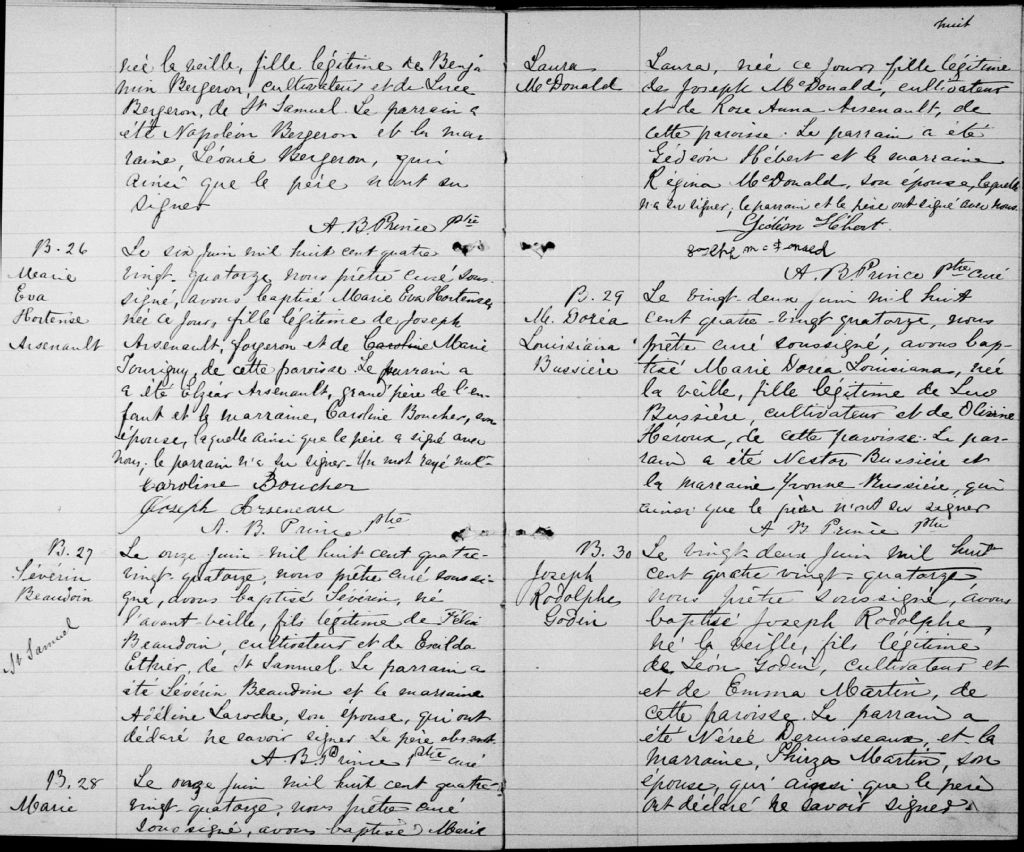 née la veille, fille légitime de Benja
min Bergeron, cultivateur et de Luce
Bergeron, de St Samuel. Le parrain a
été Napoléon Bergeron et la mar-
raine, Léonie Bergeron, qui
ainsi que le père n'ont su
signer
A. B. Prince Ptre
B. 26
Marie
Eva
Hortense
Arsenault
Le six juin mil huit cent quatre
vingt-quatorze nous prêtre curé sous-
signé, avons baptisé Marie Eva Hortense,
née ce jour, fille légitime de Joseph
Arsenault, forgeron et de Caroline Marie
Tourigny, de cette paroisse. Le parrain a
a été Elzéar Arsenault, grand'père de l'en-
fant et la marraine, Caroline Boucher, son
épouse, laquelle ainsi que le père a signé avec
nous; le parrain n'a su signer. Un mot rayé nul.
Caroline Boucher
Joseph Arseneau
A. B. Prince ptre
B. 27
Sévérin
Beaudoin
St Samuel
Le onze juin mil huit cent quatre-
vingt-quatorze, nous prêtre curé soussi-
gné, avons baptisé Sévérin, né
l'avant-veille, fils légitime de Félix
Beaudoin, cultivateur et de Exilda
Ethier, de St Samuel. Le parrain a
été Sévérin Beaudoin et la marraine
Adéline Laroche, son épouse, qui ont
déclaré ne savoir signer. Le père absent.
A B Prince Ptre curé
B. 28
Marie
Le onze juin mil huit cent quatre-
vingt-quatorze, nous prêtre curé
soussigné, avons baptisé Marie
huit
Laura
McDonald
Laura, née ce jour, fille légitime
de Joseph McDonald, cultivateur
et de Rose Anna Arsenault, de
cette paroisse. Le parrain a été
Gédéon Hébert et la marraine
Régina McDonald, son épouse, laquelle
n'a su signer; le parrain et le père ont signé avec nous.
Gédéon Hébert
A. B. Prince Ptre curé
B. 29
M. Doréa
Louisiana
Bussière
Le vingt-deux juin mil huit
cent quatre-vingt quatorze, nous
prêtre curé soussigné, avons bap-
tisé Marie Dorea Louisiana, née
la veille, fille légitime de Luc
Bussière, cultivateur et de Olivine
Héroux, de cette paroisse. Le par-
rain a été Nestor Bussière et
la marraine Yvonne Bussière, qui
ainsi que le père n'ont su signer
A B Prince ptre
B. 30
Joseph
Rodolphe
Godin
Le vingt-deux juin mil huit
cent quatre vingt-quatorze
nous prêtre soussigné, avons
baptisé Joseph Rodolphe,
né la veille, fils légitime
de Léon Godin, cultivateur et
et de Emma Martin, de
cette paroisse. Le parrain a
été Nérée Deruisseaux, et la
marraine, Thirza Martin, son
épouse, qui ainsi que le père
ont déclaré ne savoir signer.